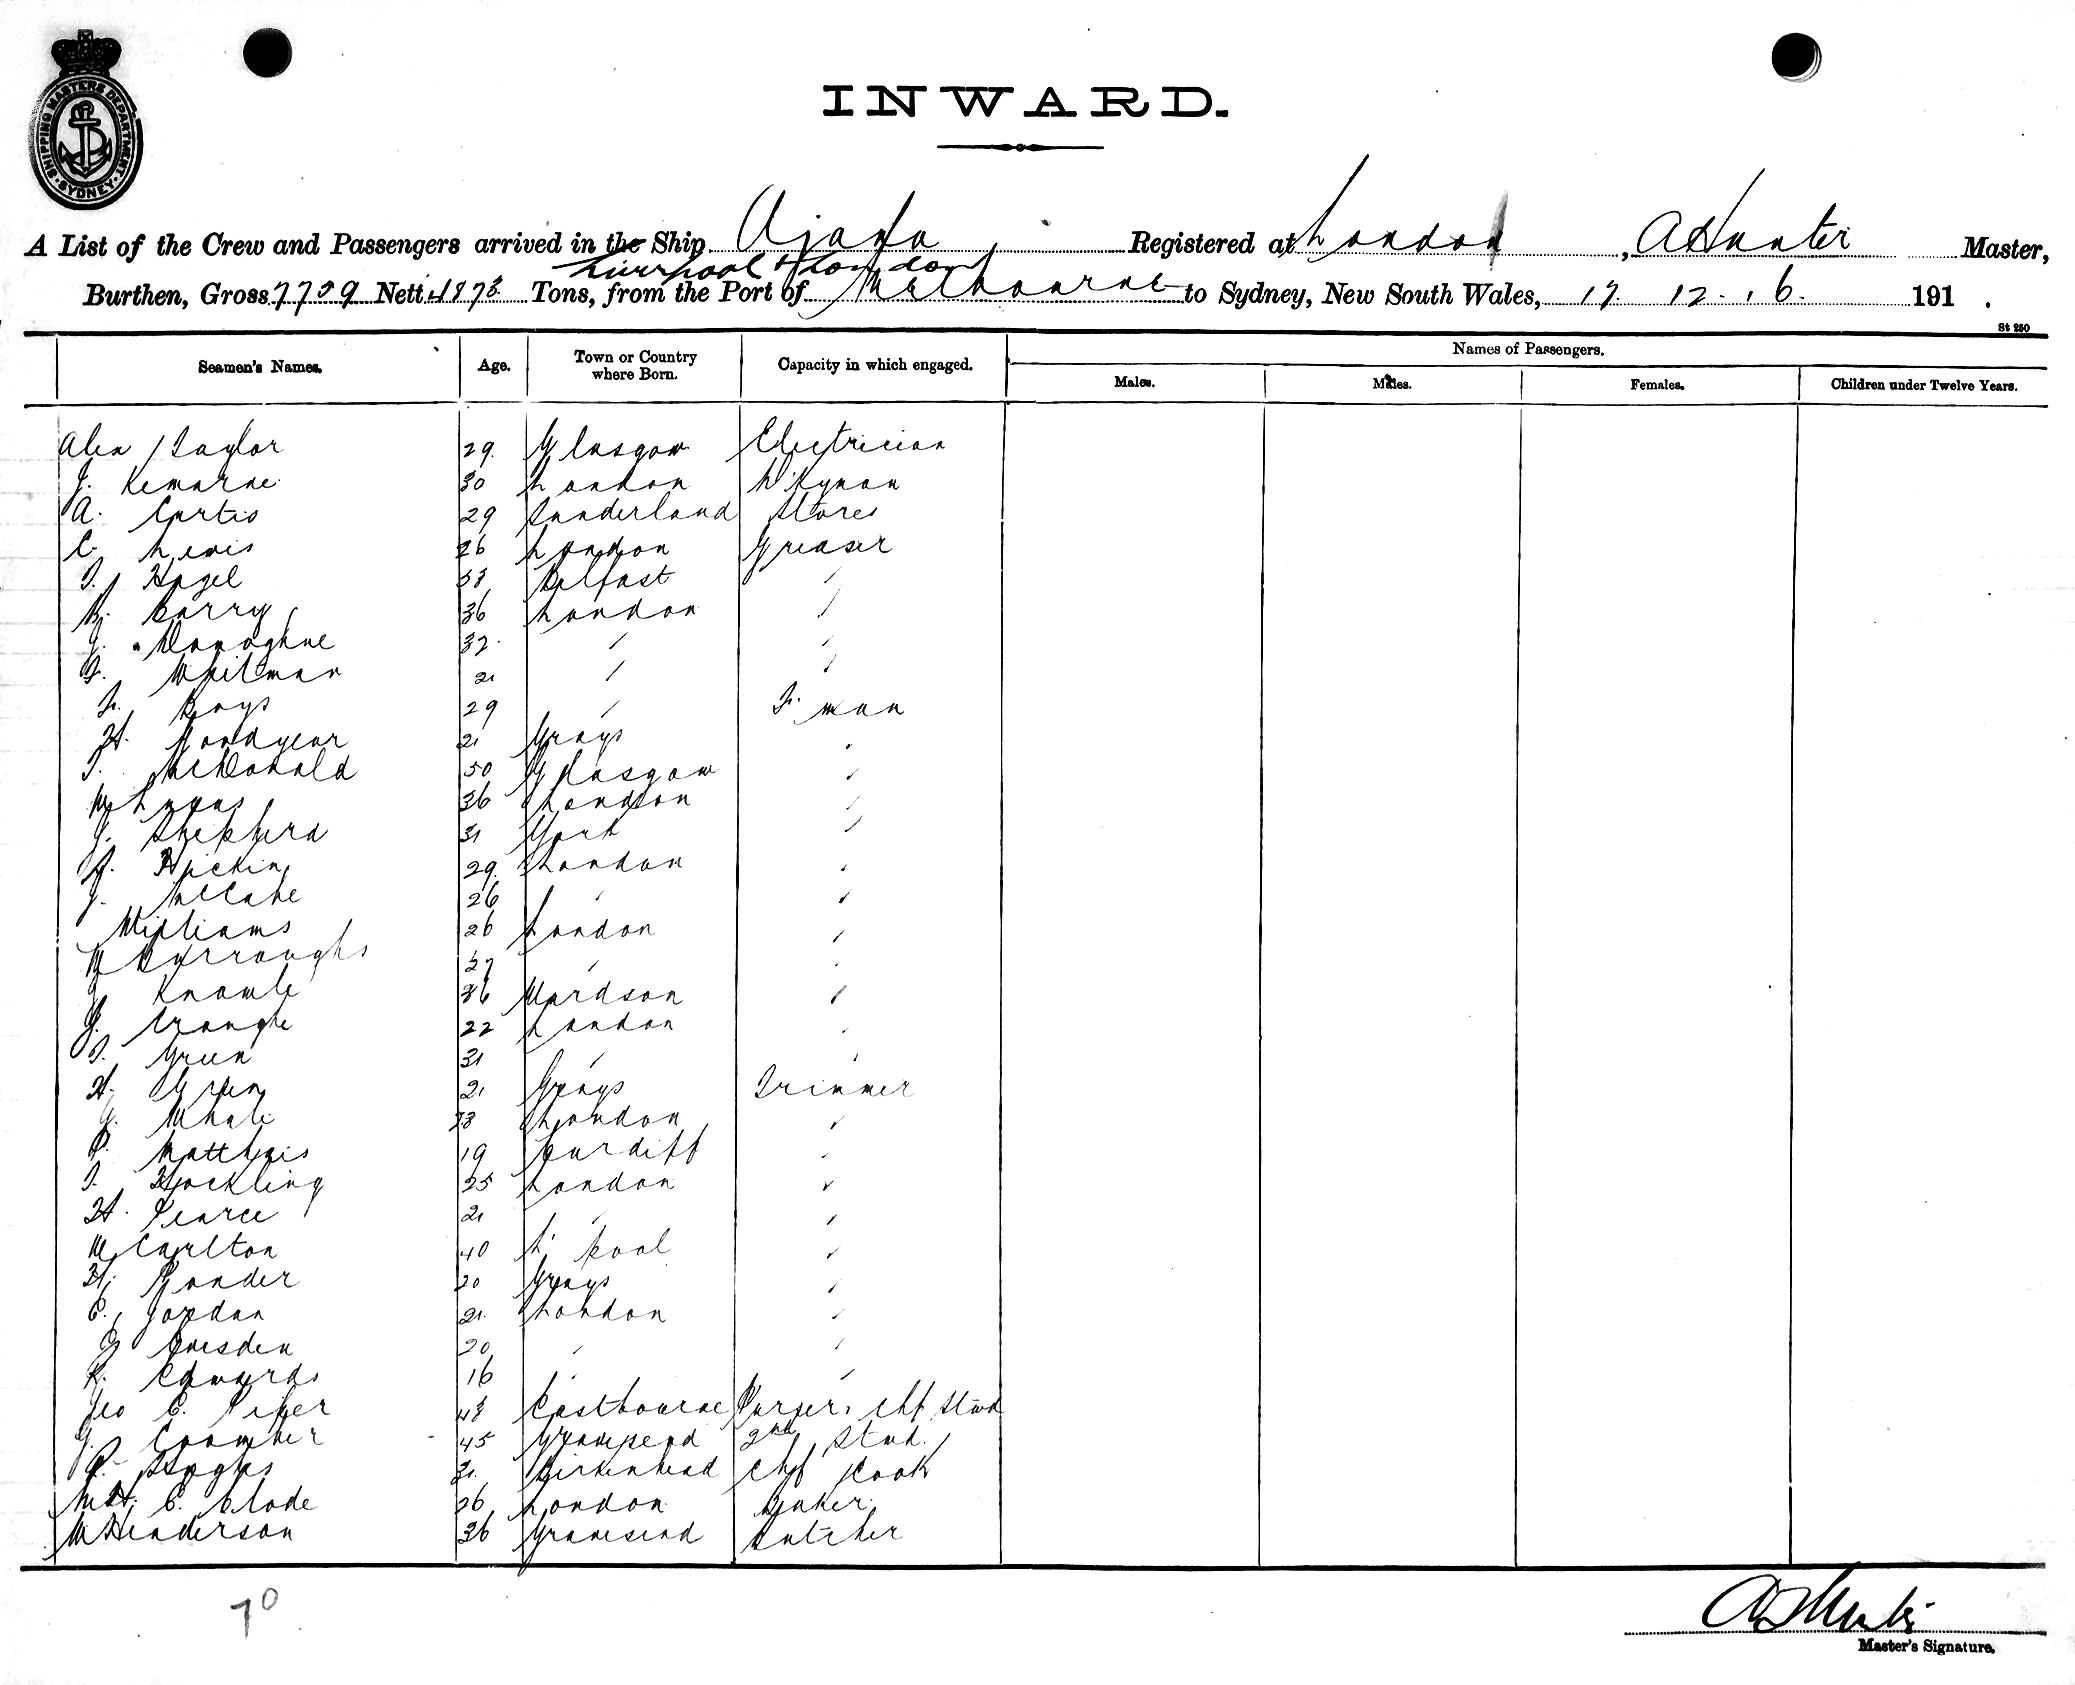 SHIPPING MASTERS DEPARTMENT · SYDNEY ·
INWARD.
A List of the Crew and Passengers arrived in the Ship Ajana, Registered at London, A Hunter Master,
Liverpool & London
Burthen, Gross 7759 Nett 4873 Tons, from the Port of Melbourne to Sydney, New South Wales, 17. 12. 16. 191 .
St 250
Seamen's Names. Age. Town or Country where Born. Capacity in which engaged. Names of Passengers.
Males. Males. Females. Children under Twelve Years.
Alex Taylor 29. Glasgow Electrician
J. Kemarne 30 London D'kyman
A. Curtis 29 Sunderland Stores
C. Lewis 26 London Greaser
T. Hazel 38 Belfast "
Barry 36 London "
J. Donoghue 32. " "
Whitman 21 " "
Boys 29 " F. man
H. Goodyear 21 Grays "
T. McDonald 50 Glasgow "
W Lucas 36 London "
J. Shepherd 31 York "
Hickin 29. London "
J. McCabe 26 " "
Williams 26 London "
W Burroughs 27 " "
Knowle 36 "
J. 22 London "
T. Green 31 " "
H. Green 21 Grays Trimmer
J. Whale 23 London "
Matthews 19 Cardiff "
T. Hockling 25 London "
H. Pearce 21 " "
W Carlton 40 L' pool "
H. Ponder 20 Grays "
E. Jordan 21. London "
20 " "
R. Edwards 16 " "
Geo C. Piper 43 Eastbourne Purser. Chf Stwd
J. Coomber 45 Gravesend 2nd Stwd.
31. Birkenhead Chf Cook
Wm H. C. Clode 26 London Baker.
W Henderson 36 Gravesend Butcher
70
A Hunter
Master's Signature.